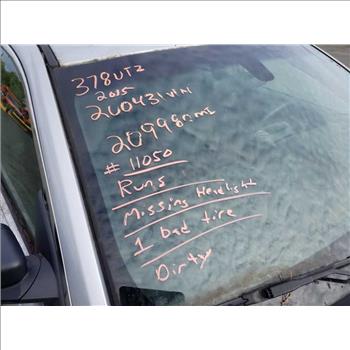 378UTZ
2015
260431 VIN
209980 MI
# 11050
Runs
Missing Headlight
1 bad tire
Dirty